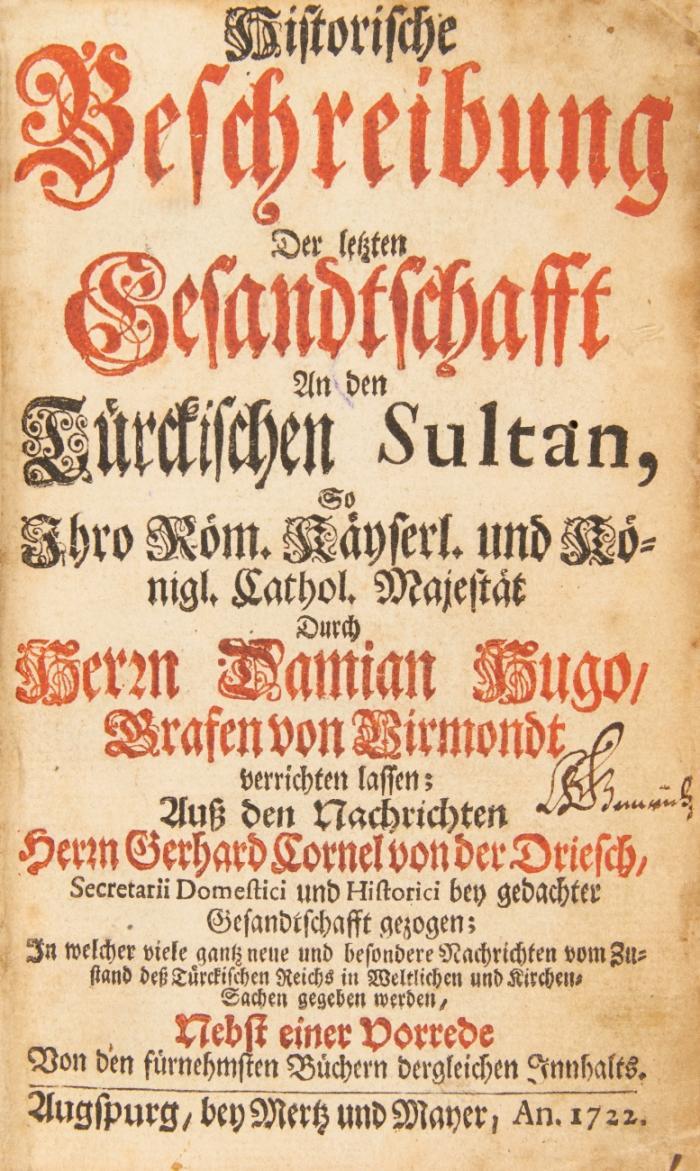 Historische
Beschreibung
Der letzten
Gesandtschafft
An den
Türckischen Sultan,
So
Ihro Röm. Käyserl. und Kö-
nigl. Cathol. Majestät
Durch
Herꝛn Damian Hugo/
Grafen von Virmondt
verrichten lassen;
Auß den Nachrichten
Herꝛn Gerhard Cornel von der Driesch/
Secretarii Domestici und Historici bey gedachter
Gesandtschafft gezogen;
In welcher viele gantz neue und besondere Nachrichten vom Zu-
stand deß Türckischen Reichs in Weltlichen und Kirchen-
Sachen gegeben werden/
Nebst einer Vorrede
Von den fürnehmsten Büchern dergleichen Innhalts.
Augspurg/ bey Mertz und Mayer, An. 1722.